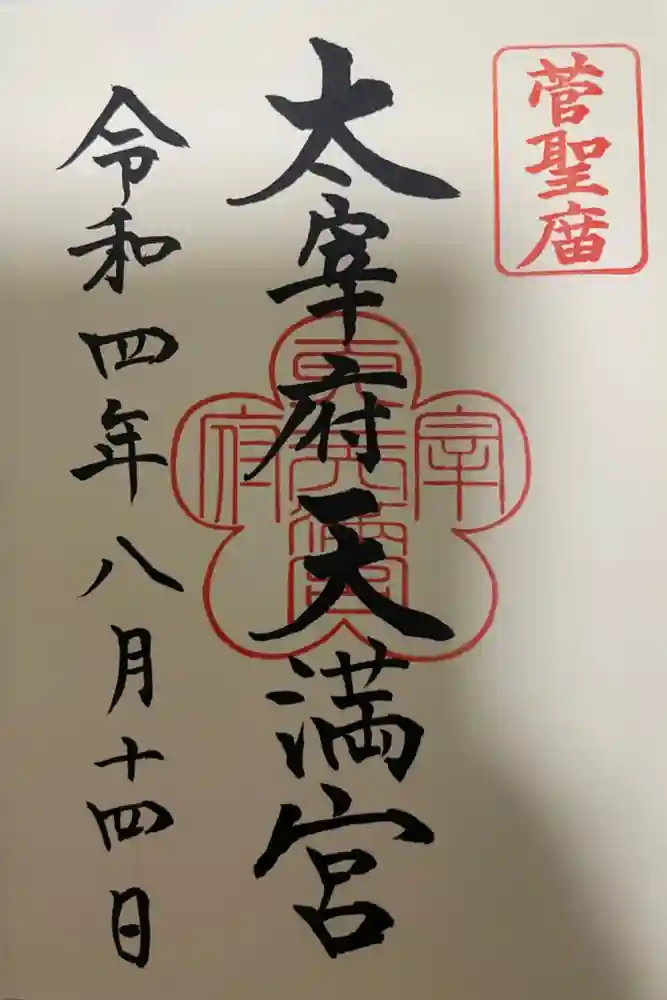 菅聖庿
太宰府天満宮
令和四年八月十四日